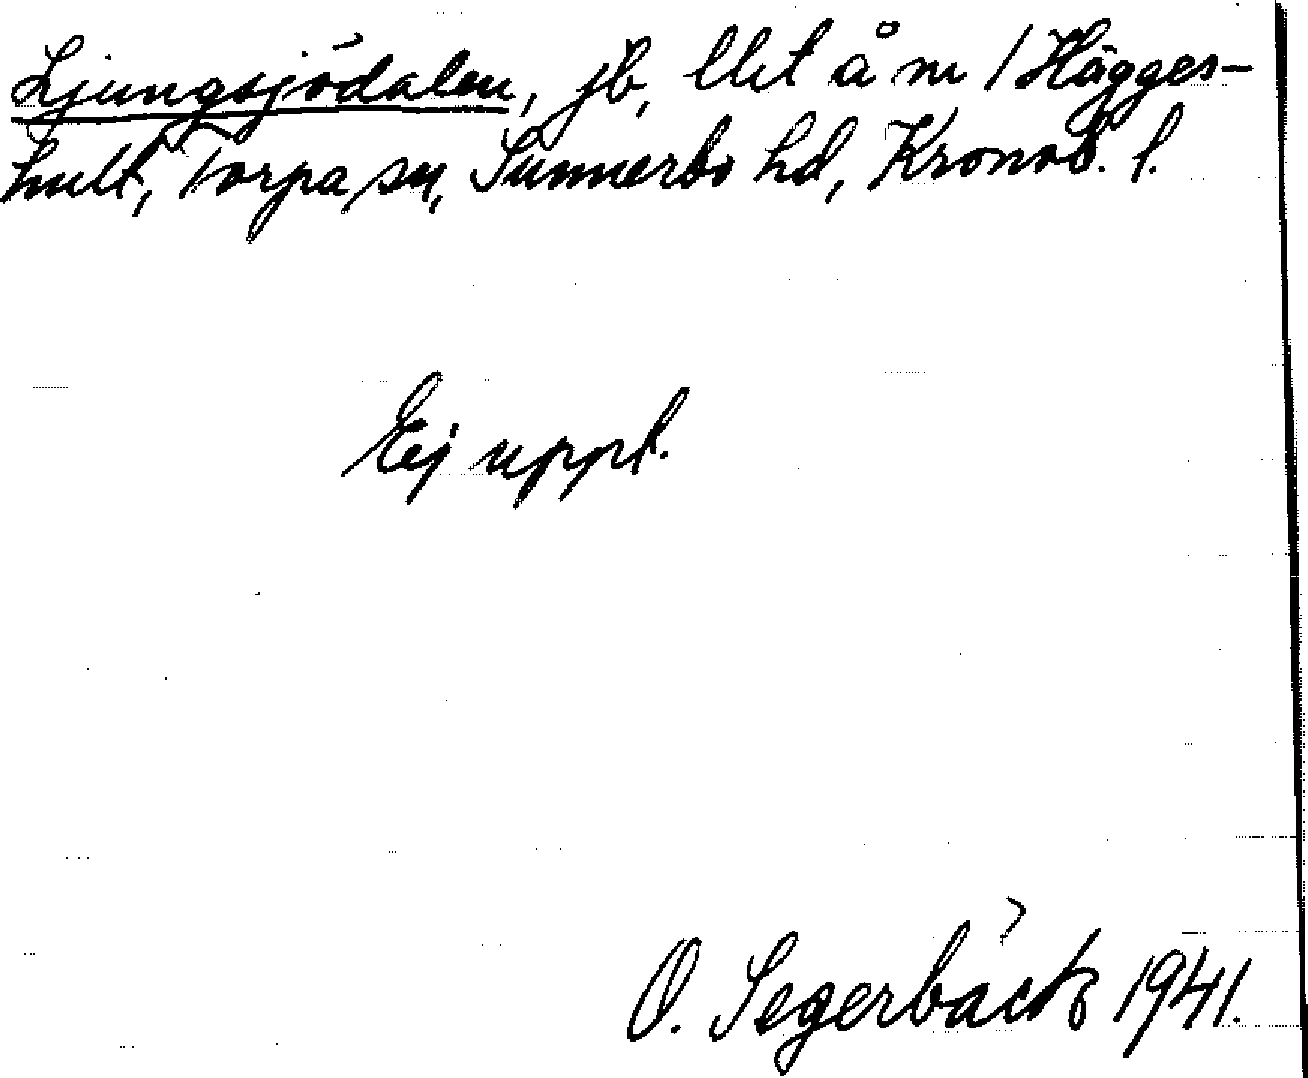 Ljungsjödalen, jb, llit å m / Hägges-
hult, Torpa sn, Sunnerbo hd, Kronob. l.
Ej uppt.
O. Segerbäck 1941.